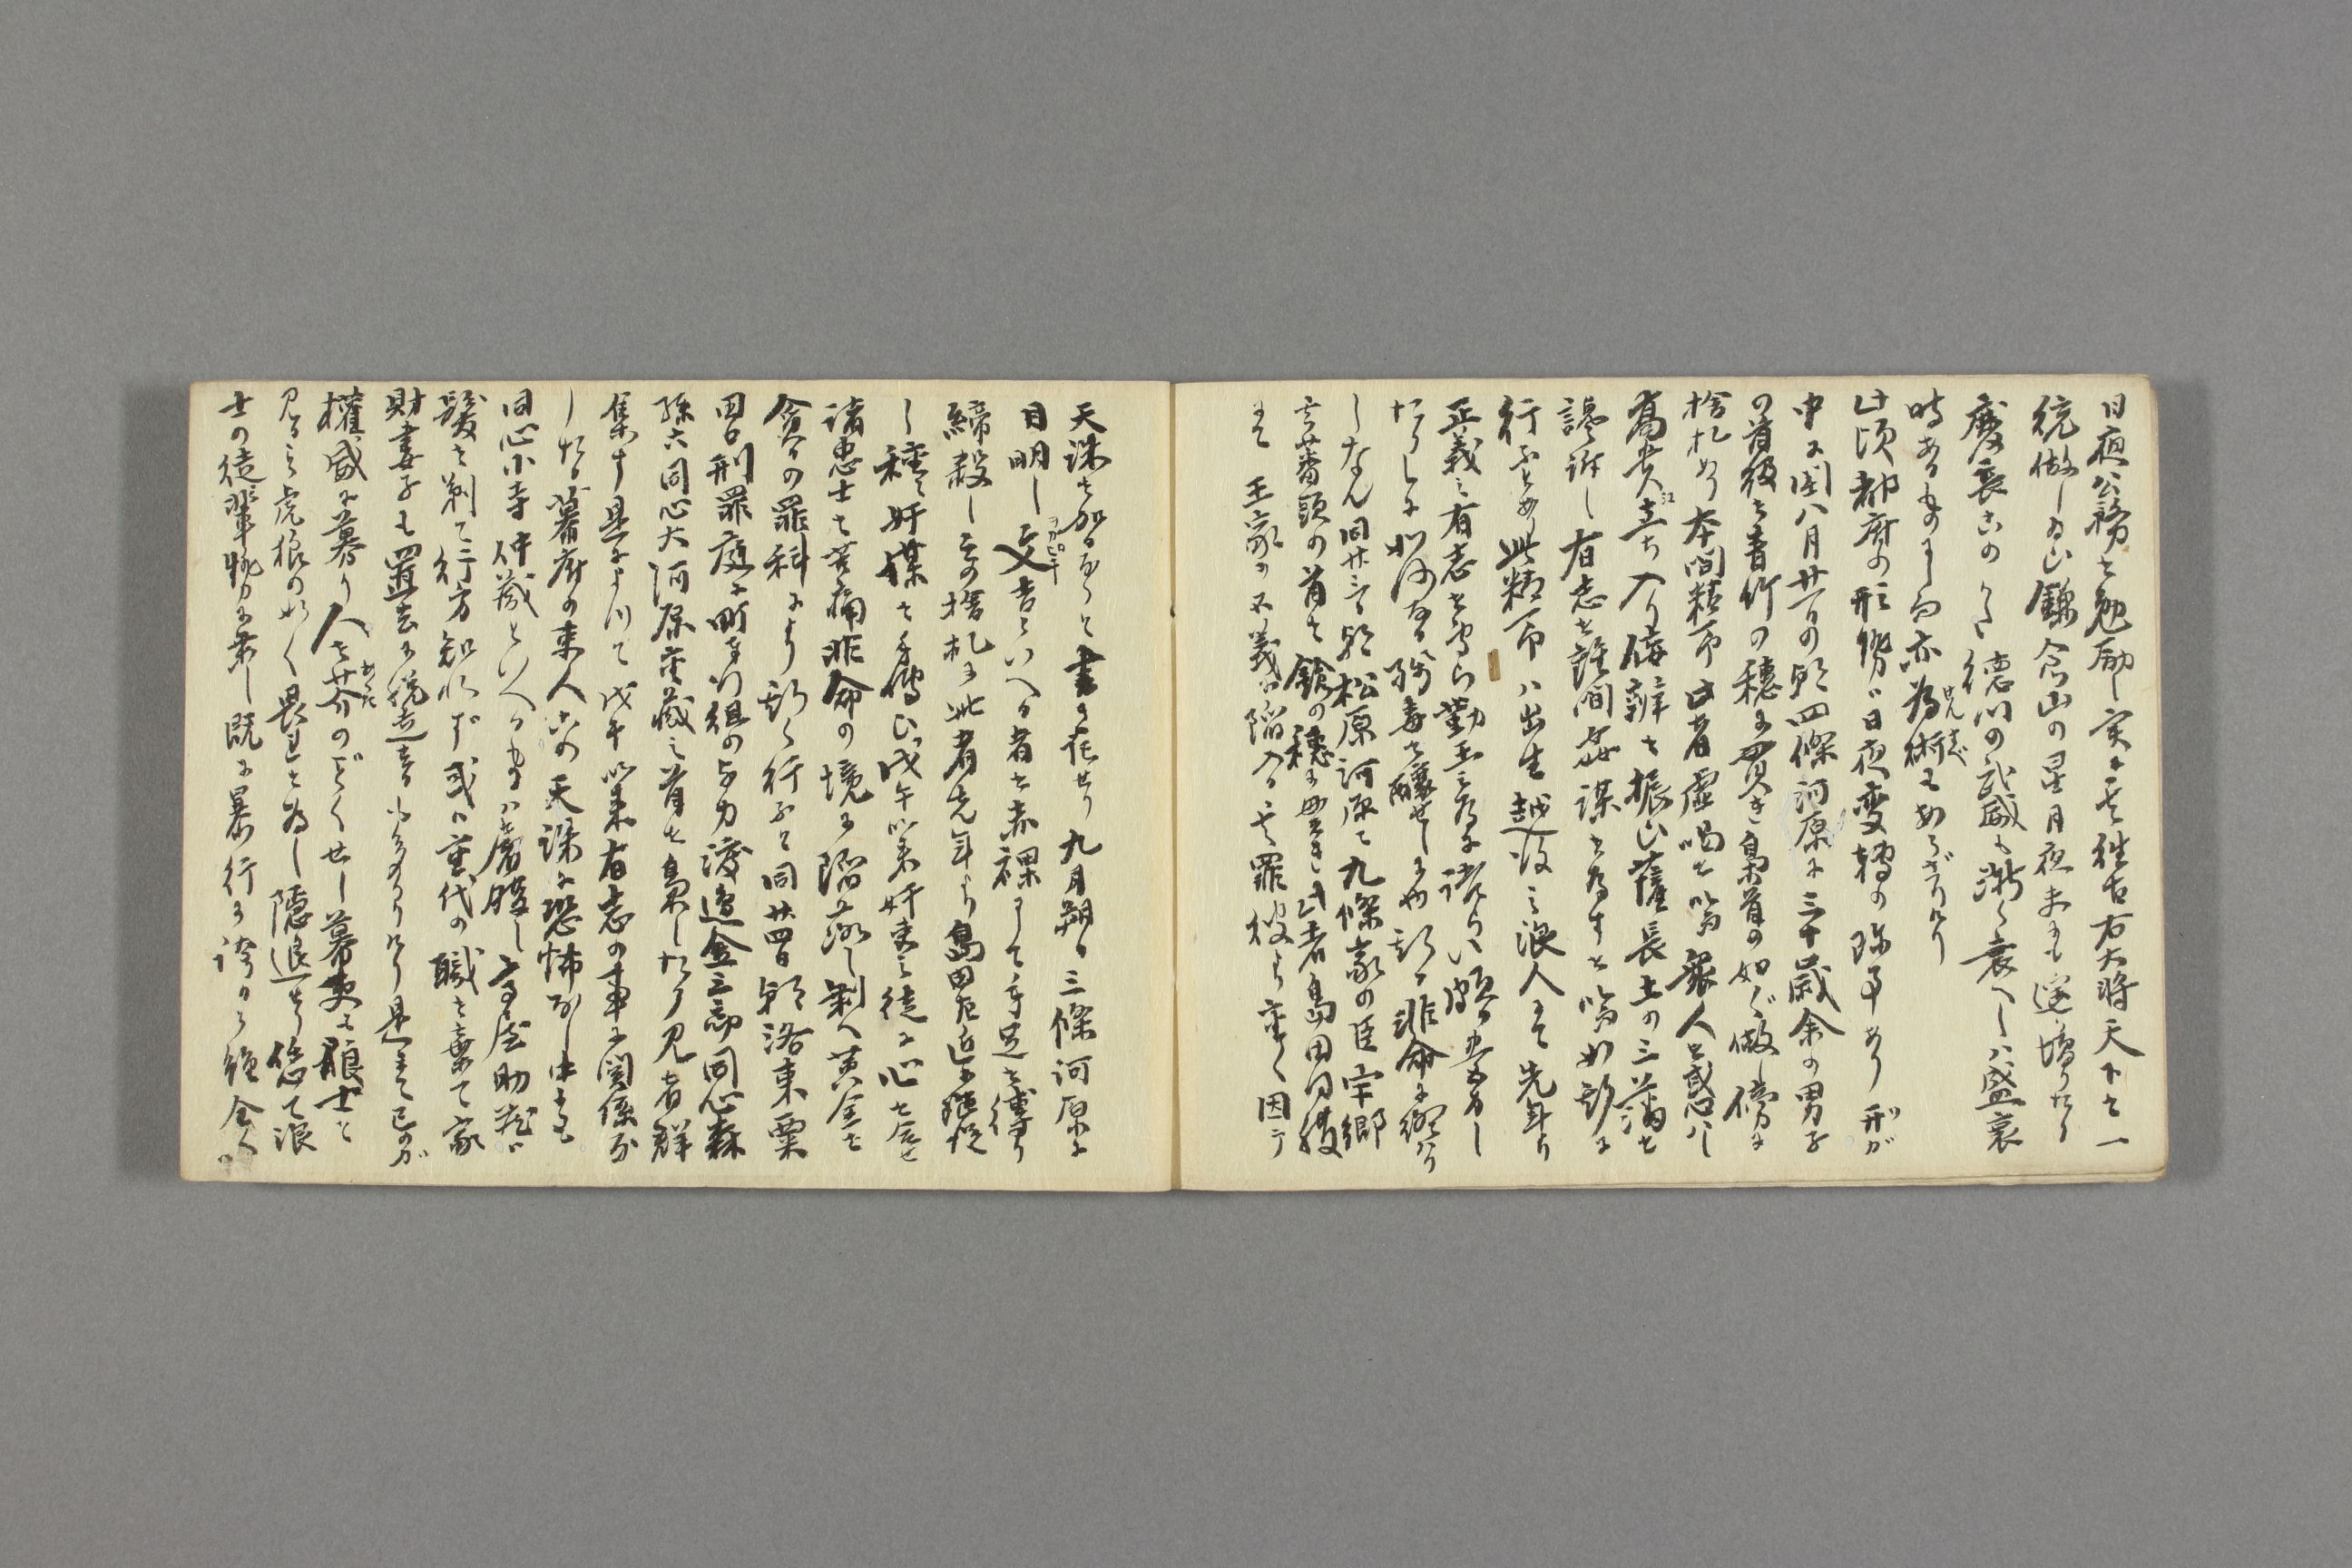 日夜公務を勉励し実に其往古右大将天下を一
統做し為し鎌倉山の星月夜にも
慶長このかた徳川の武威も漸く衰へしハ盛衰
時あるものにして亦為術もあらざりけり
此頃都府の形勢ハ日夜変轉の珍事あり
中に閏八月廿一日の朝四條河原に三十歳余の男子
の首級を青竹の穂に貫き梟首の如く做し傍に
捨札あり本間精一郎此者虚喝を以衆人を惑ハし
高貴江立ち入り侫辨を振ひ薩長土の三藩を
讒訴し有志を離間姦謀を為すを以
行ふとあり此精一郎ハ出生越後之浪人にて先年より
正義之有志を勤王
たりしに如何なる酖毒を醸せしにや非命に
しなん同廿三日朝松原河原に九條家の臣宇郷
玄蕃頭の首を鎗の穂に貫き此者島田同腹
にて 主家を不義に陥入る其罪彼より重く因テ
天誅を加るなりと書き在せり九月朔日三條河原に
目明し文吉といへる者を赤裸にして手足を縛り
締殺し其捨札に此者先年より島田左近に随従
し種々奸謀を手傳ひ戊午以来奸吏之徒に心を合せ
諸忠士を苦痛非命の境に陥し剰へ黄金を
貪るの罪科により行ふと同廿四日朝洛東粟
田口刑罪庭に町奉行組の与力渡邉金三郎同心森
孫六同心大河原重蔵之首を梟したり見者群
集す是によつて戊午以来有志の事に関係な
したる幕府の吏人この天誅に恐怖なし中にも
同心小寺仲蔵といへるものハ屠腹し
髪を剃て行方知れず或ハ重代の職を棄て家
財妻子も置去に脱走
權威に募り人を芥のごとくせし幕吏も浪士を
見る虎狼の如く畏れを為し隠退せり依て浪
士の徒輩勢に乗じ既に暴行に誇り